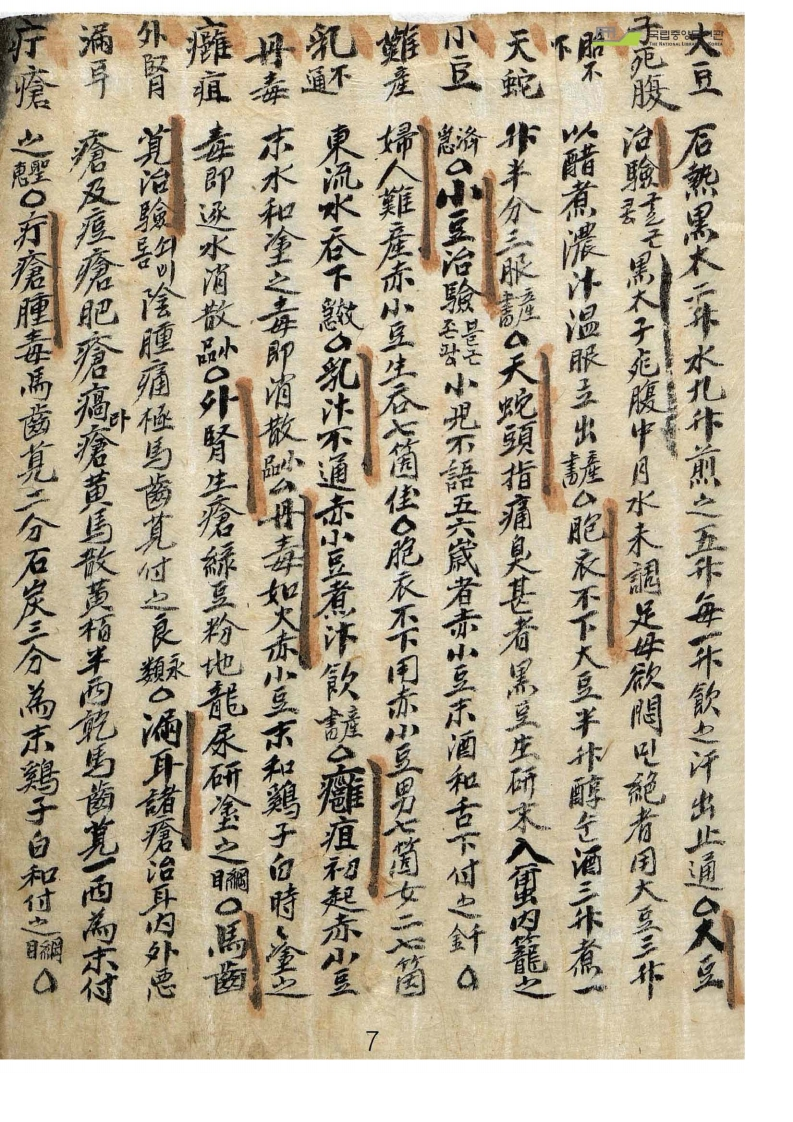 국립중앙도서관
THE NATIONAL LIBRARY OF KOREA
大豆
子死腹
胎不下
天蛇
小豆
難産
乳不通
丹毒
癰疽
外腎
漏耳
疔瘡
石熱黑太一斗水九升煎之五升每一升飮之汗出止通○大豆
治驗黑太子死腹中月水未調足母欲悶민絶者用大豆三升
以醋煮濃汁溫服立出産書○胞衣不下大豆半升醇순酒三升煮一
升半分三服産書○天蛇頭指痛臭甚者黑豆生硏末入蠒內籠之
濟急○小豆治驗블근존팟小児不語五六歲者赤小豆末酒和舌下付之千金○
婦人難産赤小豆生呑七箇佳○胞衣不下用赤小豆男七箇女二七箇
東流水呑下救急○乳汁不通赤小豆煮汁飮産書○癰疽初起赤小豆
末水和塗之毒即消散小品○丹毒如火赤小豆末和鷄子白時〻塗之
毒即逐水消散小品○外腎生瘡綠豆粉地龍屎硏塗之綱目○馬齒
莧治驗陰腫痛極馬齒莧付之良永類○漏耳諸瘡治耳內外惡
瘡及痘瘡肥瘡瘑라瘡黃馬散黃栢半両乾馬齒莧一両為末付
之聖惠○疔瘡腫毒馬齒莧二分石炭三分為末鷄子白和付之綱目○
7